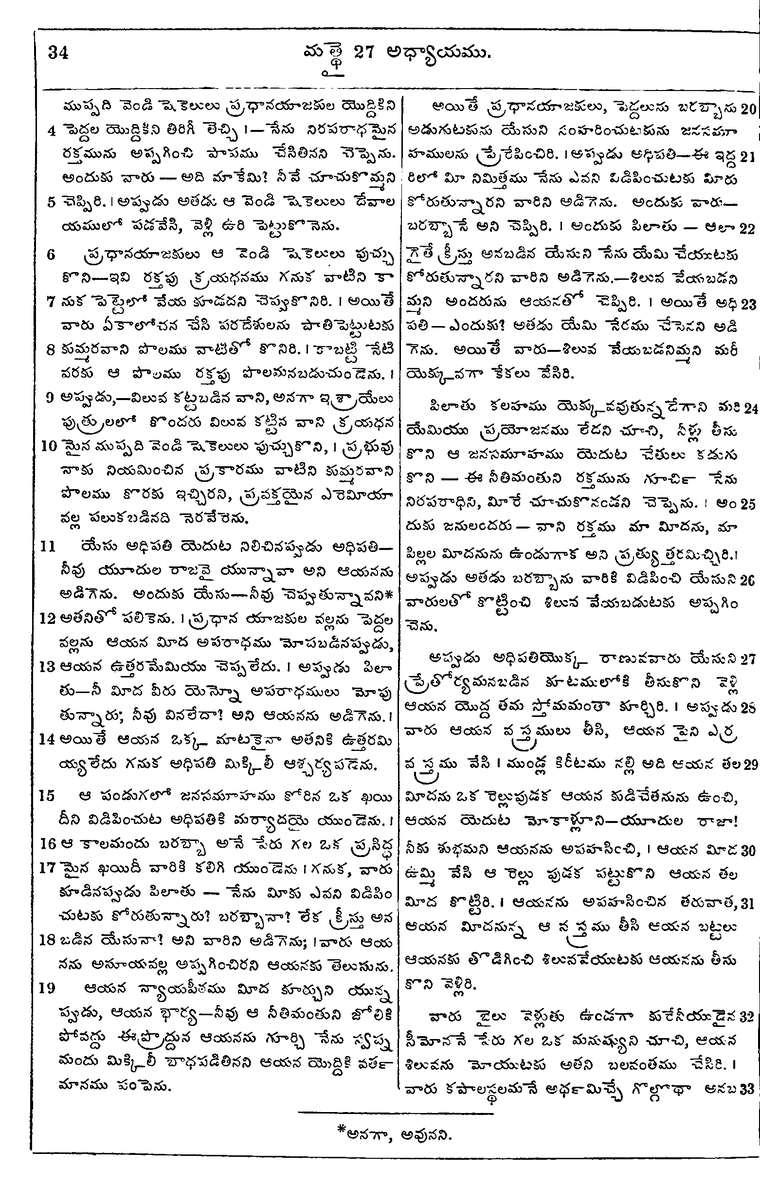 34
మత్తై 27 అధ్యాయము.
ముప్పది వెండి షెకెలులు ప్రధానయాజకుల యొద్దికిని
4 పెద్దల యొద్దికిని తిరిగీ తెచ్చి ।—నేను నిరపరాధమైన
రక్తమును అప్పగించి పాపము చేసితినని చెప్పెను.
అందుకు వారు — అది మాకేమి? నీవే చూచుకొమ్మని
5 చెప్పిరి. । అప్పుడు అతడు ఆ వెండి షెకెలులు దేవాల
యములో పడవేసి, వెళ్లి ఉరి పెట్టుకొనెను.
6 ప్రధానయాజకులు ఆ వెండి షెకెలులు పుచ్చు
కొని—ఇవి రక్తపు క్రయధనము గనుక వాటిని కా
7 నుక పెట్టెలో వేయ కూడదని చెప్పుకొనిరి. । అయితే
వారు ఏకాలోచన చేసి పరదేశులను పాతిపెట్టుటకు
8 కుమ్మరవాని పొలము వాటితో కొనిరి. । కాబట్టి నేటి
వరకు ఆ పొలము రక్తపు పొలమనబడుచుండెను. ।
9 అప్పుడు,—విలువ కట్టబడిన వాని, అనగా ఇశ్రాయేలు
పుత్రులలో కొందరు విలువ కట్టిన వాని క్రయధన
10 మైన ముప్పది వెండి షెకెలులు పుచ్చుకొని, । ప్రభువు
నాకు నియమించిన ప్రకారము వాటిని కుమ్మరవాని
పొలము కొరకు ఇచ్చిరని, ప్రవక్తయైన ఎరెమీయా
వల్ల పలుకబడినది నెరవేరెను.
11 యేసు అధిపతి యెదుట నిలిచినప్పుడు అధిపతి—
నీవు యూదుల రాజవై యున్నావా అని ఆయనను
అడిగెను. అందుకు యేసు—నీవు చెప్పుతున్నావని*
12 అతనితో పలికెను. । ప్రధాన యాజకుల వల్లను పెద్దల
వల్లను ఆయన మీద అపరాధము మోపబడినప్పుడు,
13 ఆయన ఉత్తరమేమియు చెప్పలేదు. । అప్పుడు పిలా
తు—నీ మీద వీరు యెన్నో అపరాధములు మోపు
తున్నారు; నీవు వినలేదా? అని ఆయనను అడిగెను. ।
14 అయితే ఆయన ఒక్క మాటకైనా అతనికి ఉత్తరమి
య్యలేదు గనుక అధిపతి మిక్కిలీ ఆశ్చర్యపడెను.
15 ఆ పండుగలో జనసమూహము కోరిన ఒక ఖయి
దీని విడిపించుట అధిపతికి మర్యాదయై యుండెను. ।
16 ఆ కాలమందు బరబ్బా అనే పేరు గల ఒక ప్రసిద్ధ
17 మైన ఖయిదీ వారికి కలిగి యుండెను । గనుక, వారు
కూడినప్పుడు పిలాతు — నేను మీకు ఎవని విడిపిం
చుటకు కోరుతున్నారు? బరబ్బానా? లేక క్రీస్తు అన
18 బడిన యేసునా? అని వారిని అడిగెను; । వారు ఆయ
నను అసూయవల్ల అప్పగించిరని ఆయనకు తెలుసును.
19 ఆయన న్యాయపీఠము మీద కూర్చుని యున్న
ప్పుడు, ఆయన భార్య—నీవు ఆ నీతిమంతుని జోలికి
పోవద్దు ఈప్రొద్దున ఆయనను గూర్చి నేను స్వప్న
మందు మిక్కిలీ బాధపడితినని ఆయన యొద్దికి వర్త
మానము పంపెను.
అయితే ప్రధానయాజకులు, పెద్దలును బరబ్బాను 20
అడుగుటకును యేసుని సంహరించుటకును జనసమూ
హములను ప్రేరేపించిరి. । అప్పుడు అధిపతి—ఈ ఇద్ద 21
రిలో మీ నిమిత్తము నేను ఎవని విడిపించుటకు మీరు
కోరుతున్నారని వారిని అడిగెను. అందుకు వారు—
బరబ్బానే అని చెప్పిరి. । అందుకు పిలాతు — అలా 22
గైతే క్రీస్తు అనబడిన యేసుని నేను యేమి చేయుటకు
కోరుతున్నారని వారిని అడిగెను.—శిలువ వేయబడని
మ్మని అందరును ఆయనతో చెప్పిరి. । అయితే అధి 23
పతి— ఎందుకు? అతడు యేమి నేరము చేసెనని అడి
గెను. అయితే వారు—శిలువ వేయబడనిమ్మని మరీ
యెక్కువగా కేకలు వేసిరి.
పిలాతు కలహము యెక్కువవుతున్నదేగాని మరి 24
యేమియు ప్రయోజనము లేదని చూచి, నీళ్లు తీసు
కొని ఆ జనసమూహము యెదుట చేతులు కడుగు
కొని — ఈ నీతిమంతుని రక్తమును గూర్చి నేను
నిరపరాధిని, మీరే చూచుకొనండని చెప్పెను. । అం 25
దుకు జనులందరు — వాని రక్తము మా మీదను, మా
పిల్లల మీదనును ఉండుగాక అని ప్రత్యుత్తరమిచ్చిరి.।
అప్పుడు అతడు బరబ్బాను వారికి విడిపించి యేసుని 26
వారులతో కొట్టించి శిలువ వేయబడుటకు అప్పగిం
చెను.
అప్పుడు అధిపతియొక్క రాణువవారు యేసుని 27
ప్రేతోర్యమనబడిన కూటములోకి తీసుకొని వెళ్లి
ఆయన యొద్ద తమ స్తోమమంతా కూర్చిరి. । అప్పుడు 28
వారు ఆయన వస్త్రములు తీసి, ఆయన పైని ఎర్ర
వస్త్రము వేసి । ముండ్ల కిరీటము నల్లి అది ఆయన తల 29
మీదను ఒక రెల్లుపుడక ఆయన కుడిచేతనును ఉంచి,
ఆయన యెదుట మోకాళ్లూని—యూదుల రాజా!
నీకు శుభమని ఆయనను అపహసించి, । ఆయన మీద 30
ఉమ్మి వేసి ఆ రెల్లు పుడక పట్టుకొని ఆయన తల
మీద కొట్టిరి. । ఆయనను అపహసించిన తరువాత, 31
ఆయన మీదనున్న ఆ వస్త్రము తీసి ఆయన బట్టలు
ఆయనకు తొడిగించి శిలువవేయుటకు ఆయనను తీసు
కొని వెళ్లిరి.
వారు బైలు వెళ్లుతు ఉండగా కురేనీయుడైన 32
సీమోననే పేరు గల ఒక మనుష్యుని చూచి, ఆయన
శిలువను మోయుటకు అతని బలవంతము చేసిరి. ।
వారు కపాలస్థలమనే అర్థమిచ్చే గొల్గొథా అనబ 33
*అనగా, అవునని.